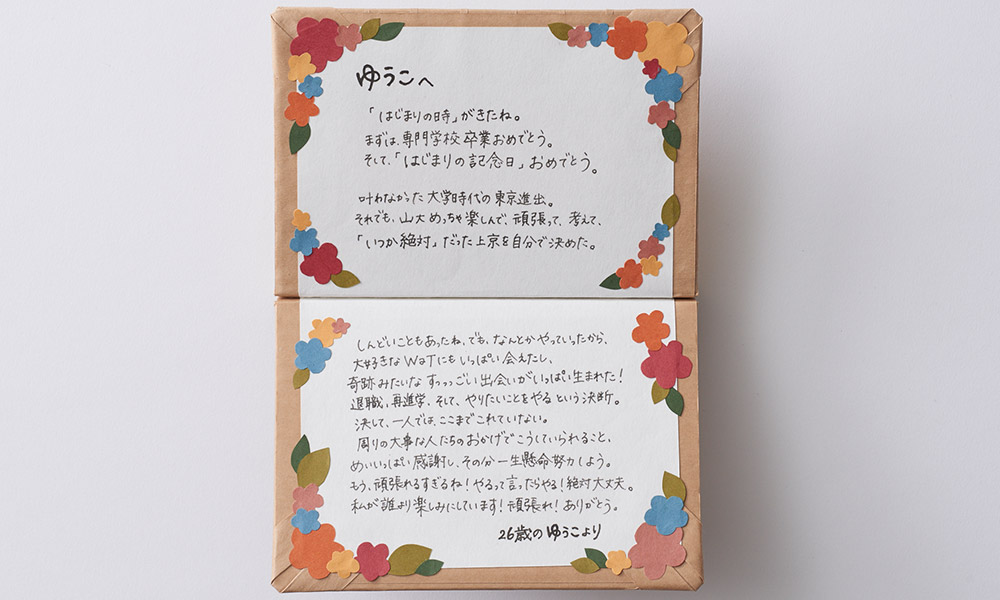 ゆうこへ
「はじまりの時」がきたね。
まずは、専門学校卒業おめでとう。
そして、「はじまりの記念日」おめでとう。
叶わなかった大学時代の東京進出。
それでも、山大めっちゃ楽しんで、頑張って、考えて、
「いつか絶対」だった上京を自分で決めた。
しんどいこともあったね、でも、なんとかやっていったから、
大好きなWaTにもいっぱい会えたし、
奇跡みたいなすっっっごい出会いがいっぱい生まれた!
退職、再進学、そして、やりたいことをやるという決断。
決して、一人では、ここまでこれていない。
周りの大事な人たちのおかげでこうしていられること、
めいいっぱい感謝し、その分一生懸命努力しよう。
もう、頑張れるすぎるね!やるって言ったらやる!絶対大丈夫。
私が誰より楽しみにしています!頑張れ!ありがとう。
26歳のゆうこより